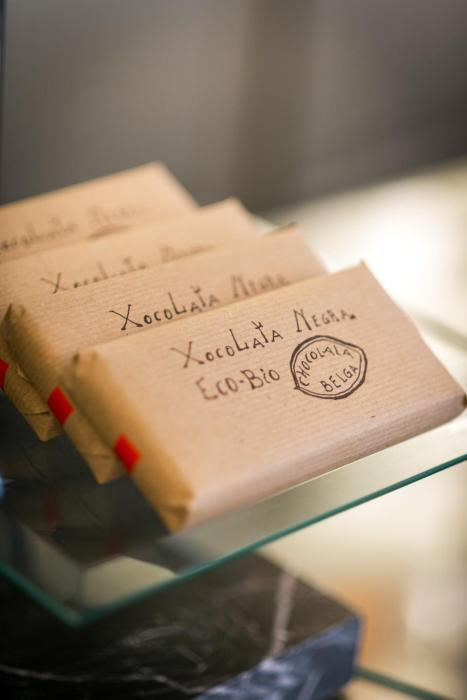 Xocolata Negra
Xocolata Negra
Xocolata Negra
Xocolata Negra
Eco-Bio
CHOCOLATA
BELGA